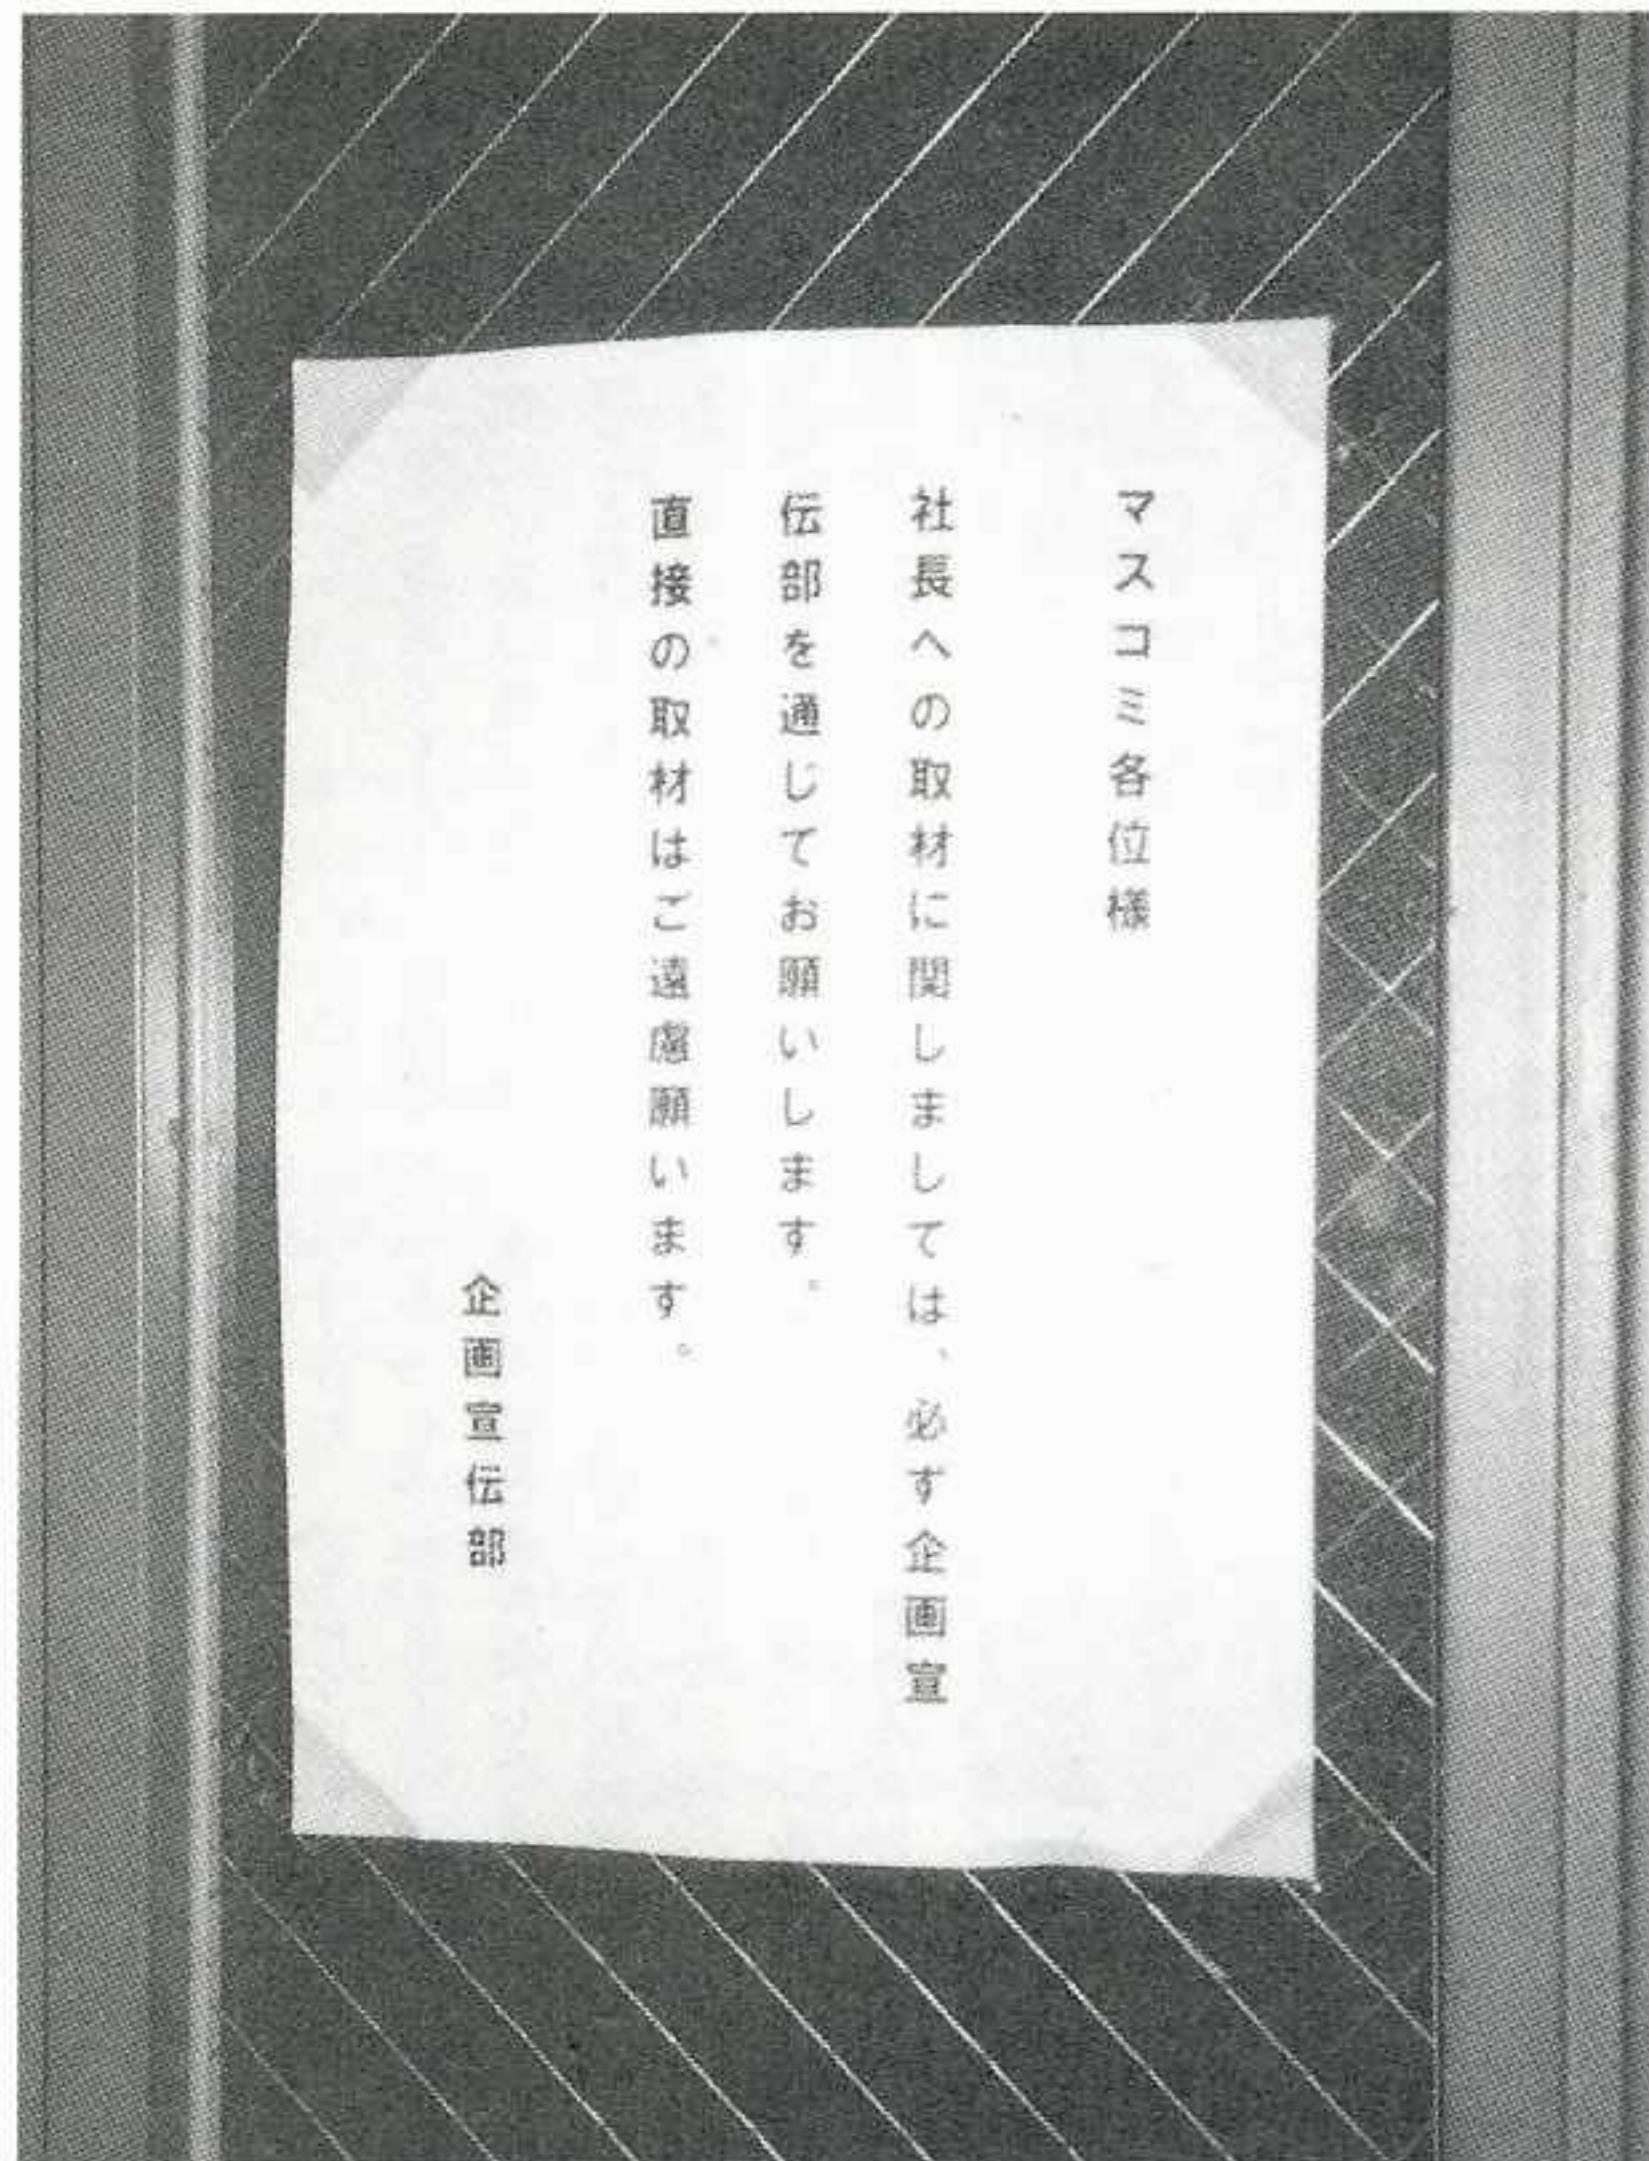 マスコミ各位様
社長への取材に関しましては、必ず企画宣
伝部を通じてお願いします。
直接の取材はご遠慮願います。
企画宣伝部